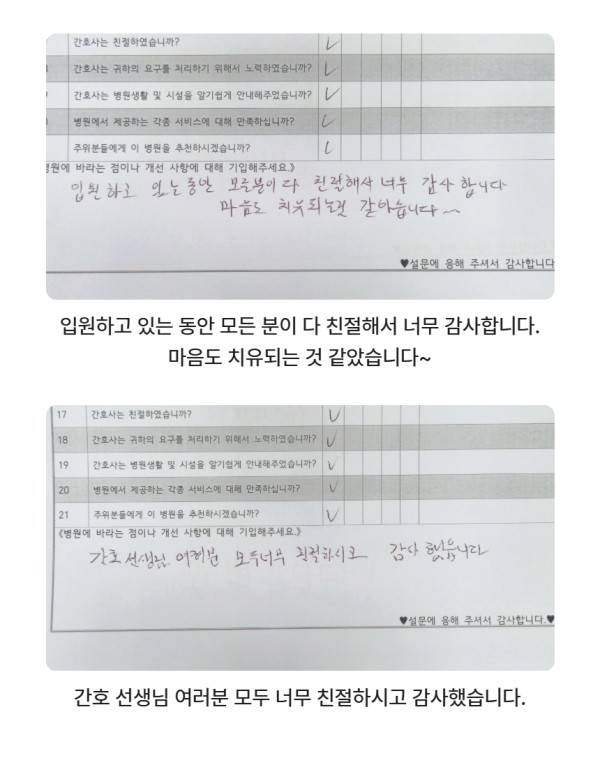 간호사는 친절하였습니까?
간호사는 귀하의 요구를 처리하기 위해서 노력하였습니까?
간호사는 병원생활 및 시설을 알기쉽게 안내해주었습니까?
병원에서 제공하는 각종 서비스에 대해 만족하십니까?
주위분들에게 이 병원을 추천하시겠습니까?
병원에 바라는 점이나 개선 사항에 대해 기입해주세요.》
입원하고 있는동안 모든분이 다 친절해서 너무 감사합니다
마음도 치유되는것 같았습니다~
♥설문에 응해 주셔서 감사합니다
입원하고 있는 동안 모든 분이 다 친절해서 너무 감사합니다.
마음도 치유되는 것 같았습니다~
17 간호사는 친절하였습니까?
18 간호사는 귀하의 요구를 처리하기 위해서 노력하였습니까?
19 간호사는 병원생활 및 시설을 알기쉽게 안내해주었습니까?
20 병원에서 제공하는 각종 서비스에 대해 만족하십니까?
21 주위분들에게 이 병원을 추천하시겠습니까?
《병원에 바라는 점이나 개선 사항에 대해 기입해주세요.》
간호선생님 여러분 모두너무 친절하시고 감사했습니다
♥설문에 응해 주셔서 감사합니다.♥
간호 선생님 여러분 모두 너무 친절하시고 감사했습니다.